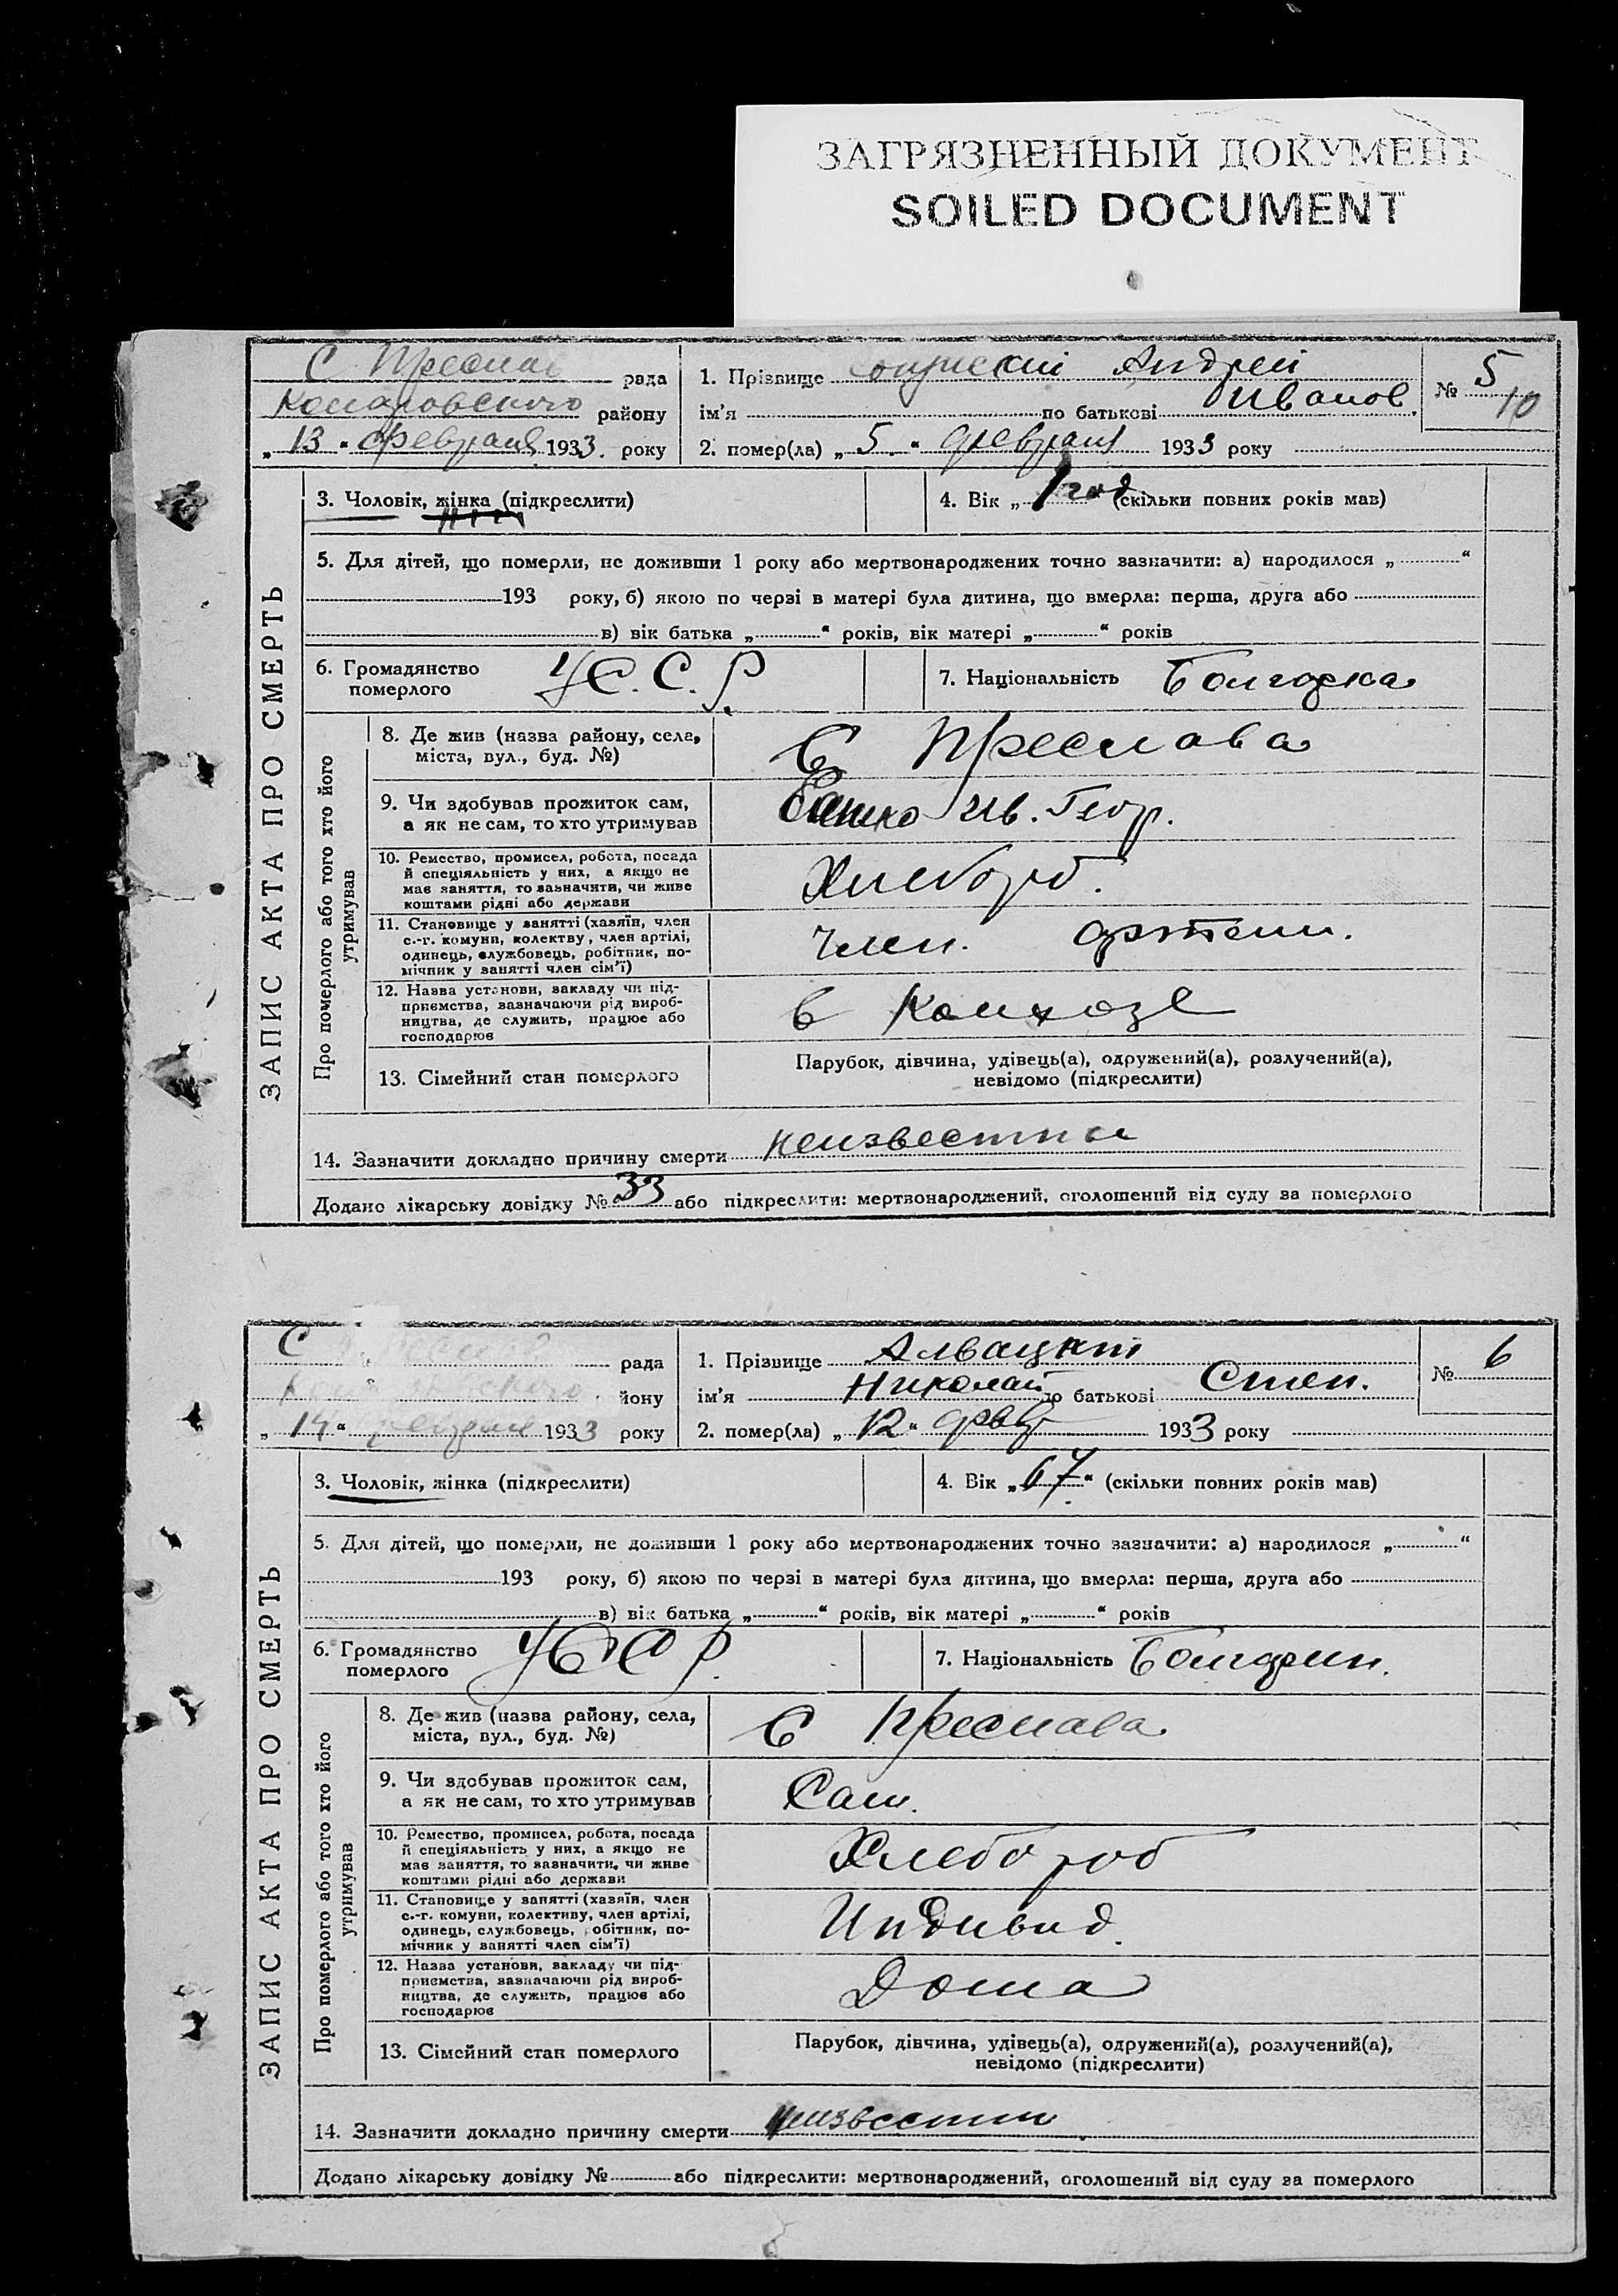 ЗАГРЯЗНЕННЫЙ ДОКУМЕНТ
SOILED DOCUMENT
С Преслав рада
района
„13“ февраля 1933 року
1. Прізвище Андрей
ім'я по батькові Иванов
2. помер(ла) „5“ февраля 1933 року
№ 5
10
ЗАПИС АКТА ПРО СМЕРТЬ
3. Чоловік, жінка (підкреслити)
4. Вік „1 год (скільки повних років мав)
5. Для дітей, що померли, не доживши 1 року або мертвонароджених точно зазначити: а) народилося „ “
193 року, б) якою по черзі в матері була дитина, що вмерла: перша, друга або
в) вік батька „ “ років, вік матері „ “ років
6. Громадянство
померлого
У.С.С.Р.
7. Національність Болгарка
Про померлого або того хто його
утримував
8. Де жив (назва району, села,
міста, вул., буд. №)
С Преслава
9. Чи здобував прожиток сам,
а як не сам, то хто утримував
Ив. Геор.
10. Ремество, промисел, робота, посада
й спеціяльність у них, а якщо не
має заняття, то зазначити, чи живе
коштами рідні або держави
Хлебороб.
11. Становище у занятті (хазяїн, член
с.-г. комуни, колективу, член артілі,
одинець, службовець, робітник, по-
мічник у занятті член сім'ї)
Член. артели.
12. Назва установи, закладу чи під-
приємства, зазначаючи рід вироб-
ництва, де служить, працює або
господарює
в колхозе
13. Сімейний стан померлого
Парубок, дівчина, удівець(а), одружений(а), розлучений(а),
невідомо (підкреслити)
14. Зазначити докладно причину смерти неизвестны
Додано лікарську довідку № 33 або підкреслити: мертвонароджений, оголошений від суду за померлого
С рада
йону
„14“ февраля 1933 року
1. Прізвище Алвацкий
ім'я Николай по батькові Степ.
2. помер(ла) „12“ февр 1933 року
№ 6
ЗАПИС АКТА ПРО СМЕРТЬ
3. Чоловік, жінка (підкреслити)
4. Вік „67“ (скільки повних років мав)
5. Для дітей, що померли, не доживши 1 року або мертвонароджених точно зазначити: а) народилося „ “
193 року, б) якою по черзі в матері була дитина, що вмерла: перша, друга або
в) вік батька „ “ років, вік матері „ “ років
6. Громадянство
померлого
УССР.
7. Національність Болгарин.
Про померлого або того хто його
утримував
8. Де жив (назва району, села,
міста, вул., буд. №)
С Преслава
9. Чи здобував прожиток сам,
а як не сам, то хто утримував
Сам.
10. Ремество, промисел, робота, посада
й спеціяльність у них, а якщо не
має заняття, то зазначити, чи живе
коштами рідні або держави
Хлебороб
11. Становище у занятті (хазяїн, член
с.-г. комуни, колективу, член артілі,
одинець, службовець, робітник, по-
мічник у занятті член сім'ї)
Индивид.
12. Назва установи, закладу чи під-
приємства, зазначаючи рід вироб-
ництва, де служить, працює або
господарює
Дома
13. Сімейний стан померлого
Парубок, дівчина, удівець(а), одружений(а), розлучений(а),
невідомо (підкреслити)
14. Зазначити докладно причину смерти неизвестны
Додано лікарську довідку № або підкреслити: мертвонароджений, оголошений від суду за померлого